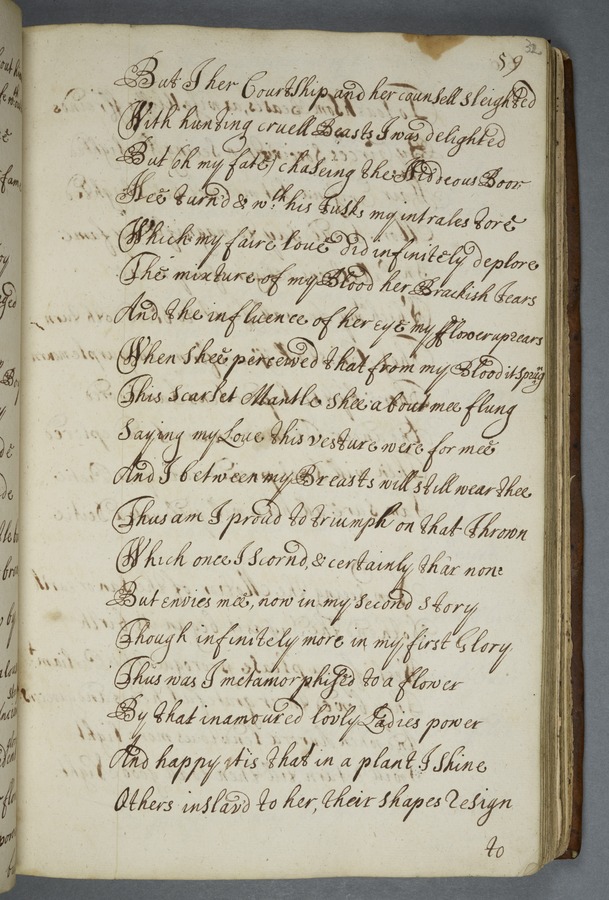 59
32
But I her Courtship and her counsell sleighted
With hunting cruell Beasts I was delighted
But (oh my fate) chaseing the Hidreous Boor
Hee turn'd & wth his Tusks my intrales tore
Which my faire love did infinitely deplore
The mixture of my Blood her Brackish tears
And the influence of her eye my fflower uprears
When Shee perceived that from my Blood it Sprūg
This Scarlet Mantle Shee about mee flung
Saying my Love this vesture were for mee
And I between my Breasts will still wear thee
Thus am I proud to triumph on that Thron
Which once I scornd, & certainly thar none
But envies mee, now in my second Story
Though infinitely more in my first Glory
Thus was I metamorphised to a flower
By that inamoured lovly Ladies power
And happy itis that in a plant I Shine
Others inslavd to her, their shapes resign
to